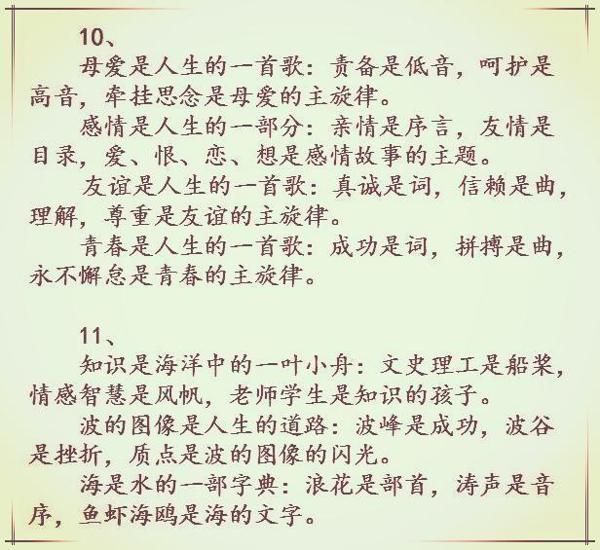 10、
母爱是人生的一首歌：责备是低音，呵护是
高音，牵挂思念是母爱的主旋律。
感情是人生的一部分：亲情是序言，友情是
目录，爱、恨、恋、想是感情故事的主题。
友谊是人生的一首歌：真诚是词，信赖是曲，
理解，尊重是友谊的主旋律。
青春是人生的一首歌：成功是词，拼搏是曲，
永不懈怠是青春的主旋律。
11、
知识是海洋中的一叶小舟：文史理工是船桨，
情感智慧是风帆，老师学生是知识的孩子。
波的图像是人生的道路：波峰是成功，波谷
是挫折，质点是波的图像的闪光。
海是水的一部字典：浪花是部首，涛声是音
序，鱼虾海鸥是海的文字。